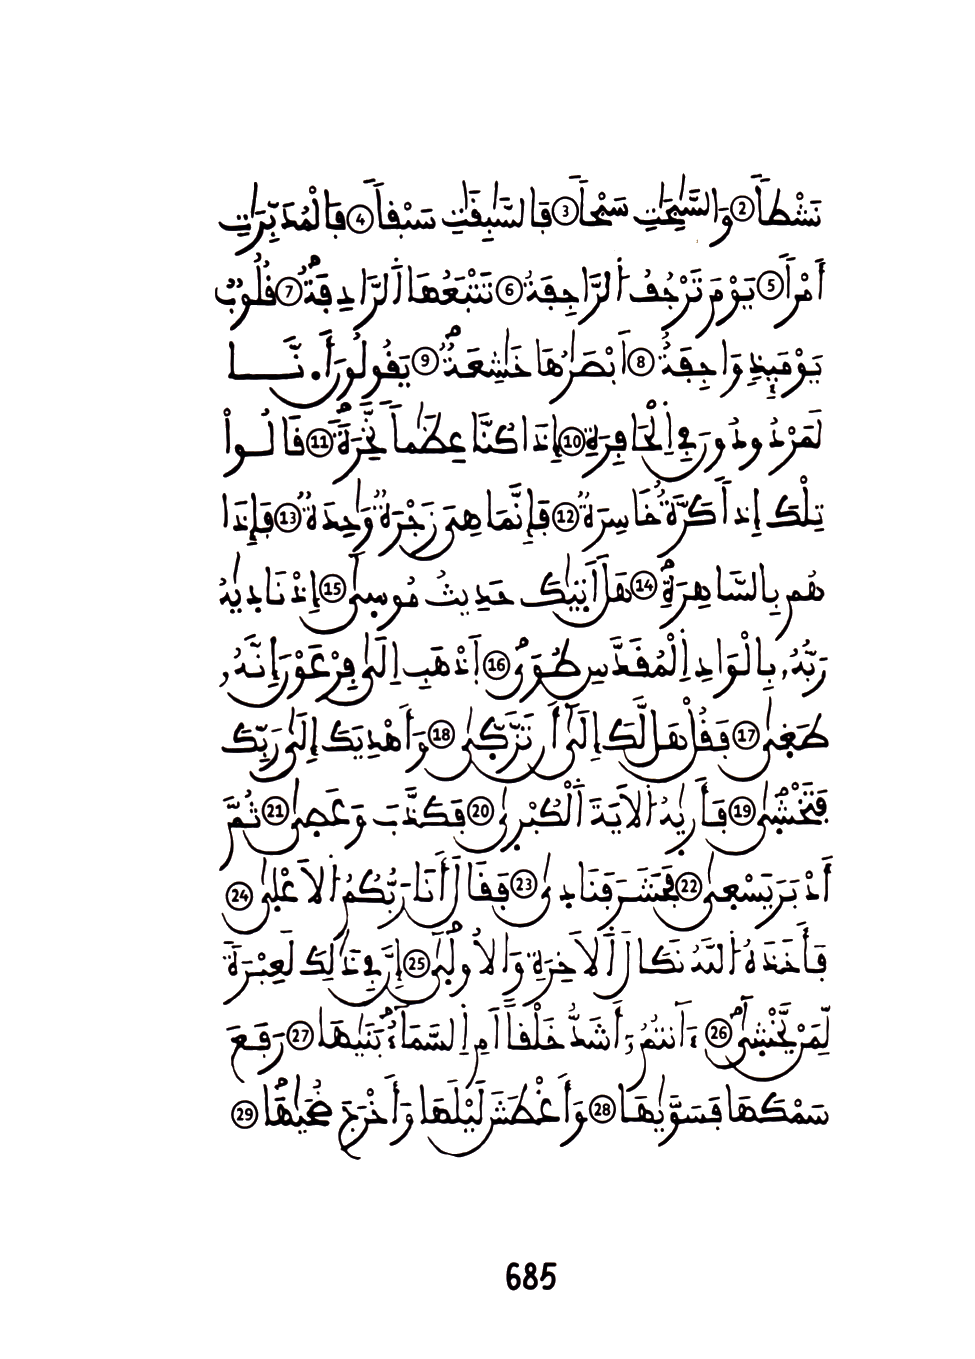 نَشْطاً ② وَالسَّٰبِحَٰتِ سَبْحاً ③ فَالسَّٰبِقَٰتِ سَبْقاً ④ فَالْمُدَبِّرَٰتِ
أَمْراً ⑤ يَوْمَ تَرْجُفُ اُ۬لرَّاجِفَةُ ⑥ تَتْبَعُهَا اَ۬لرَّادِفَةُۖ ⑦ قُلُوبٞ
يَوْمَئِذٖ وَاجِفَةٌ ⑧ اَبْصَٰرُهَا خَٰشِعَةٞۖ ⑨ يَقُولُونَ أَ.نَّا
لَمَرْدُودُونَ فِے اِ۬لْحَافِرَةِ ⑩ إِذَا كُنَّا عِظَٰماً نَّخِرَةٗۖ ⑪ قَالُواْ
تِلْكَ إِذاٗ كَرَّةٌ خَاسِرَةٞ ⑫ فَإِنَّمَا هِيَ زَجْرَةٞ وَٰحِدَةٞ ⑬ فَإِذَا
هُم بِالسَّاهِرَةِۖ ⑭ هَلَ اَت۪يٰكَ حَدِيثُ مُوس۪ىٰٓ ⑮ إِذْ نَاد۪يٰهُ
رَبُّهُۥ بِالْوَادِ اِ۬لْمُقَدَّسِ طُوَيۖ ⑯ اَ۪ذْهَبِ اِلَىٰ فِرْعَوْنَ إِنَّهُۥ
طَغ۪ىٰ ⑰ فَقُلْ هَل لَّكَ إِلَىٰٓ أَن تَزَّكّ۪ىٰ ⑱ وَأَهْدِيَكَ إِلَىٰ رَبِّكَ
فَتَخْش۪ىٰۖ ⑲ فَأَر۪يٰهُ اُ۬لَايَةَ اَ۬لْكُبْر۪ىٰ ⑳ فَكَذَّبَ وَعَص۪ىٰ ㉑ ثُمَّ
أَدْبَرَ يَسْع۪ىٰ ㉒ فَحَشَرَ فَنَاد۪ىٰ ㉓ فَقَالَ أَنَا رَبُّكُمُ اُ۬لَاعْل۪ىٰ ㉔
فَأَخَذَهُ اُ۬للَّهُ نَكَالَ اَ۬لَاخِرَةِ وَالُاول۪ىٰٓۖ ㉕ إِنَّ فِے ذَٰلِكَ لَعِبْرَةٗ
لِّمَنْ يَّخْش۪ىٰٓۖ ㉖ ءَآنتُمُۥٓ أَشَدُّ خَلْقاً اَمِ اِ۬لسَّمَآءُۖ بَن۪يٰهَا ㉗ رَفَعَ
سَمْكَهَا فَسَوّ۪يٰهَا ㉘ وَأَغْطَشَ لَيْلَهَا وَأَخْرَجَ ضُح۪يٰهَاۖ ㉙
685